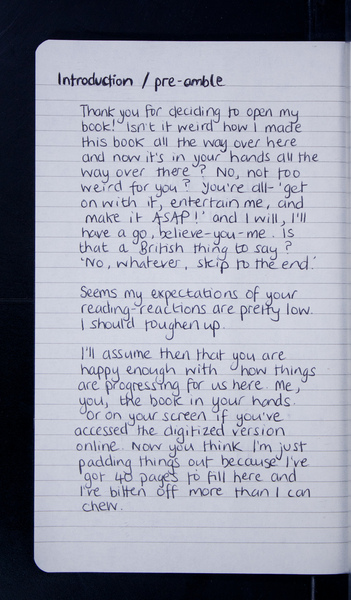 Introduction / pre-amble
Thank you for deciding to open my
book! Isn't it weird how I made
this book all the way over here
and now it's in your hands all the
way over there? No, not too
weird for you? You're all- 'get
on with it, entertain me, and
make it ASAP!' and I will, I'll
have a go, believe-you-me. Is
that a British thing to say?
'No, whatever, skip to the end.'
Seems my expectations of your
reading-reactions are pretty low.
I should toughen up.
I'll assume then that you are
happy enough with how things
are progressing for us here. Me,
you, the book in your hands.
Or on your screen if you've
accessed the digitized version
online. Now you think I'm just
padding things out because I've
got 40 pages to fill here and
I've bitten off more than I can
chew.